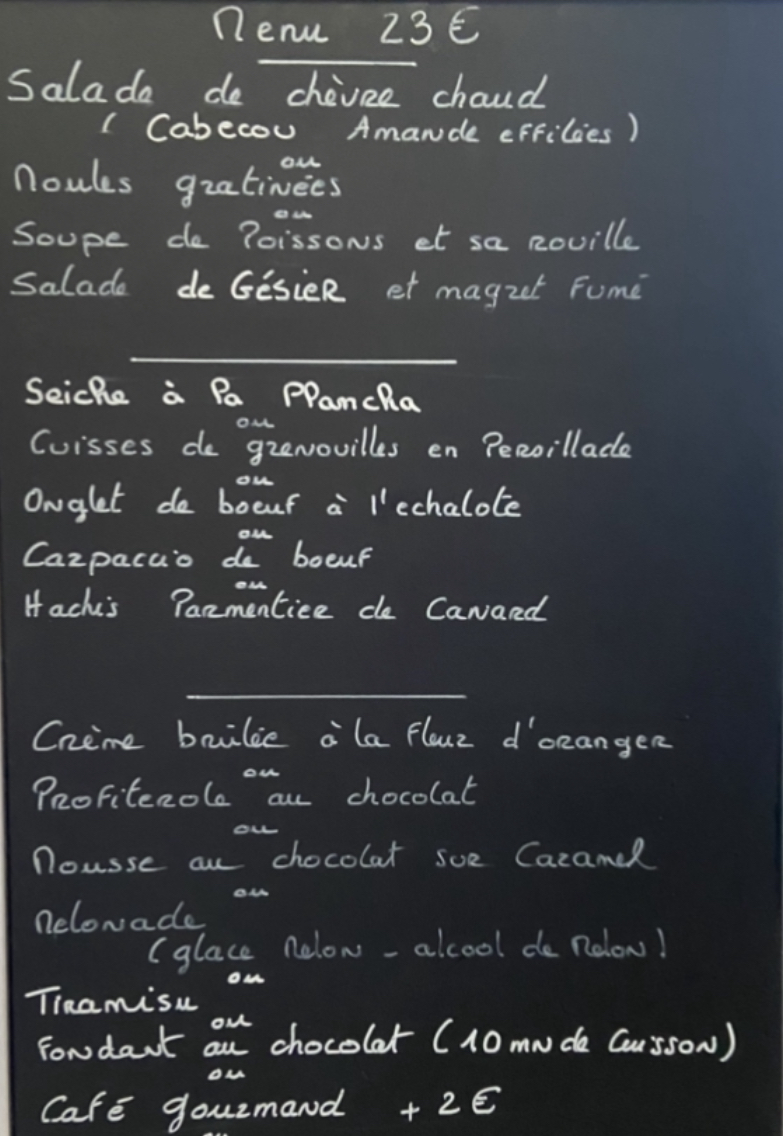 Menu 23€
Salade de chèvre chaud
( Cabecou Amande effilées )
ou
Moules gratinées
ou
Soupe de Poissons et sa rouille
Salade de Gésier et magret Fumé
Seiche à la Plancha
ou
Cuisses de grenouilles en Persillade
ou
Onglet de boeuf à l'echalote
ou
Carpaccio de boeuf
ou
Hachis Parmentier de Canard
Crème brûlée à la Fleur d'oranger
ou
Profiterole au chocolat
ou
Mousse au chocolat sur Caramel
ou
Melonade
(glace Melon - alcool de Melon)
ou
Tiramisu
ou
Fondant au chocolat (10 mn de Cuisson)
ou
Café gourmand + 2€
ou